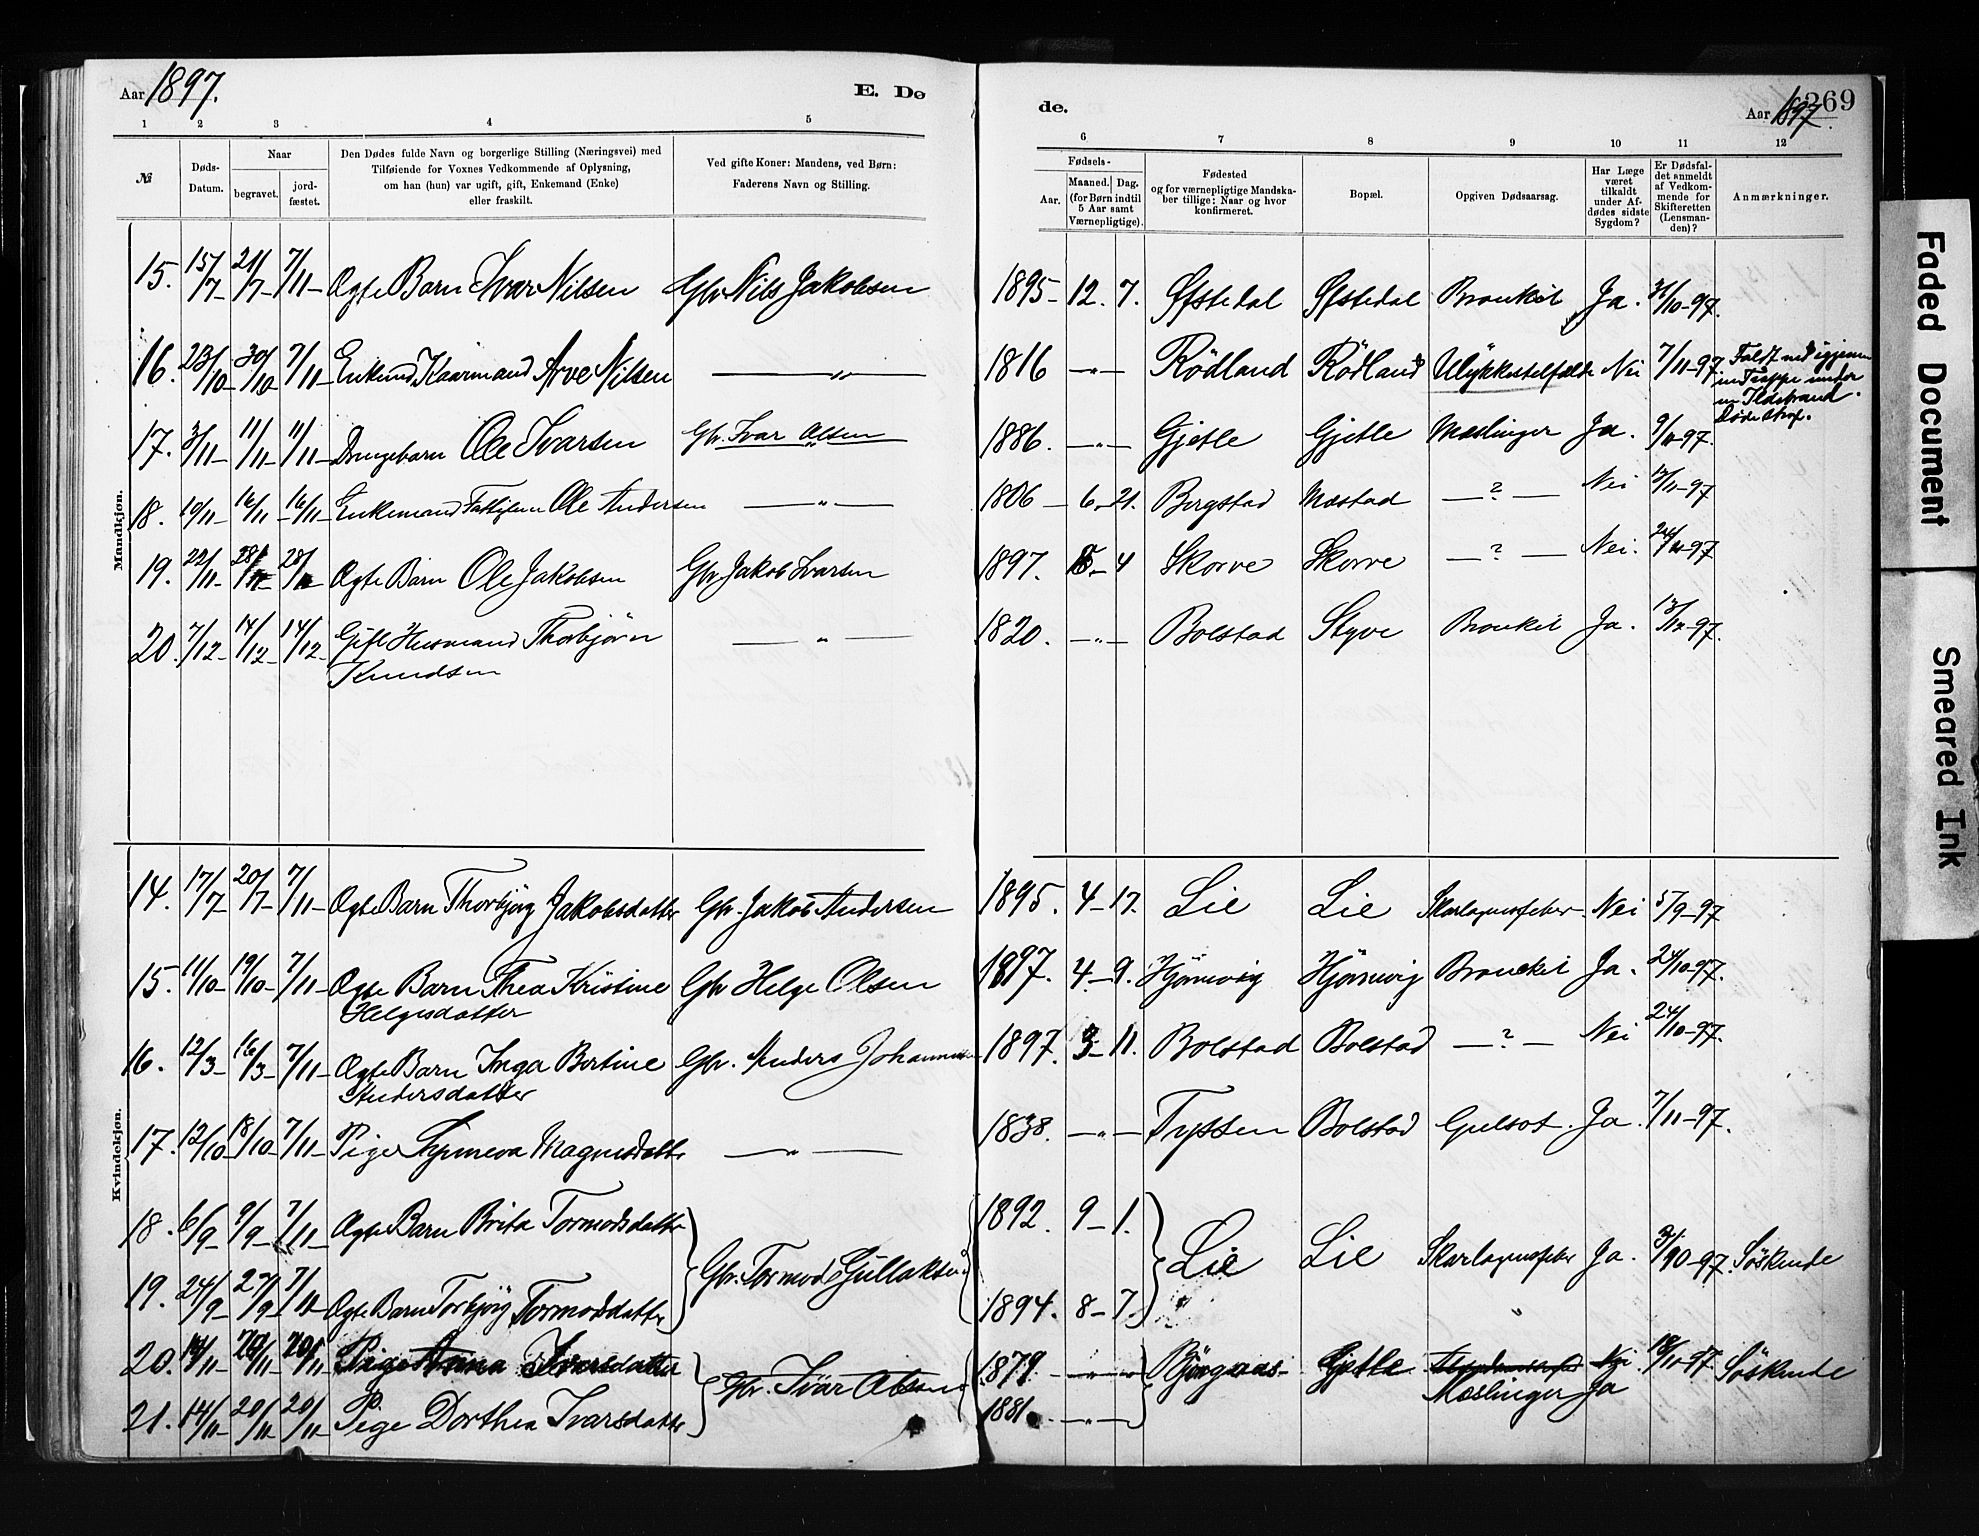 Aar 1897.
E. Dø
de.
Aar 1897.
269
1 2 3 4 5 6 7 8 9 10 11 12
№
Døds-Datum.
Naar
begravet.
jord-fæstet.
Den Dødes fulde Navn og borgerlige Stilling (Næringsvei) med
Tilføiende for Voxnes Vedkommende af Oplysning,
om han (hun) var ugift, gift, Enkemand (Enke)
eller fraskilt.
Ved gifte Koner: Mandens, ved Børn:
Faderens Navn og Stilling.
Fødsels-
Aar.
Maaned. Dag.
(for Børn indtil
5 Aar samt
Værnepligtige).
Fødested
og for værnepligtige Mandska-
ber tillige: Naar og hvor
konfirmeret.
Bopæl.
Opgiven Dødsaarsag.
Har Læge
været
tilkaldt
under Af-
dødes sidste
Sygdom?
Er Dødsfal-
det anmeldt
af Vedkom-
mende for
Skifteretten
(Lensman-
den)?
Anmærkninger.
Mandkjøn.
15. 15/7- 21/7- 7/11- Ægte Barn Ivar Nilsen Gbr Nils Jakobsen 1895- 12. 7. Øfstedal Øfstedal Bronkit Ja. 31/10-97.
16. 23/10- 30/10 7/11- Enkemd Kaarmand Arve Nilsen — „ — 1816 — „ — Rödland Rödland Ulykkestilfælde Nei 7/11-97 Faldt ned igjennem
en Trappe under
en Ildebrand.
Døde strax.
17. 3/11- 11/11- 11/11- Drengebarn Ole Ivarsen Gbr. Ivar Olsen 1886. — „ — Gjetle Gjetle Mæslinger Ja. 9/11-97.
18. 10/11- 16/11 16/11- Enkemand Fattiglem Ole Andersen — „ — 1806 — 6- 21. Bergstad Mæstad — ? — Nei 13/11-97
19. 22/11- 28/11- 28/11- Ægte Barn Ole Jakobsen Gbr Jakob Ivarsen 1897. 5- 4 Skorve Skorve — ? — Nei. 24/11-97
20. 7/12- 14/12- 14/12- Gift Husmand Thorbjørn
Knudsen — „ — 1820. — „ — Bolstad Styve Bronkit Ja. 13/12-97.
Kvindekjøn.
14. 17/7- 20/7- 7/11- Ægte Barn Thorbjørg Jakobsdatter Gbr. Jakob Andersen 1895. 4- 17. Lie Lie Skarlagensfeber Nei 5/9-97
15. 11/10- 19/10- 7/11- Ægte Barn Thea Kristine
Helgesdatter Gbr Helge Olsen 1897. 4- 9. Hjörnevig Hjörnevig Bronckit Ja. 24/10-97.
16. 12/3- 16/3- 7/11- Ægte Barn Inga Bertine
Andersdatter Gbr. Anders Johannessen 1897. 3- 11. Bolstad Bolstad — ? — Nei 24/10-97.
17. 12/10- 18/10- 7/11- Pige Synneva Magnesdatter — „ — 1838. — „ — Tyssen Bolstad Gulsot. Ja. 7/11-97.
18. 6/9- 9/9- 7/11- Ægte Barn Brita Tormodsdatter 1892. 9- 1.
Gbr. Tormod Gullaksen Lie Lie Skarlagensfeber Ja. 3/10-97. Söskende
19. 24/9- 27/9- 7/11 Ægte Barn Torbjörg Tormodsdatter 1894. 8- 7. „ „
20. 14/11- 20/11- 20/11- Pige Anna Ivarsdatter 1879. — „ — Björgaas- Gjetle Nei 18/11-97. Söskende
Gbr. Ivar Olsen Mæslinger Ja
21. 14/11- 20/11 20/11- Pige Dorthea Ivarsdatter 1881. — „ —
Faded Document
Smeared Ink